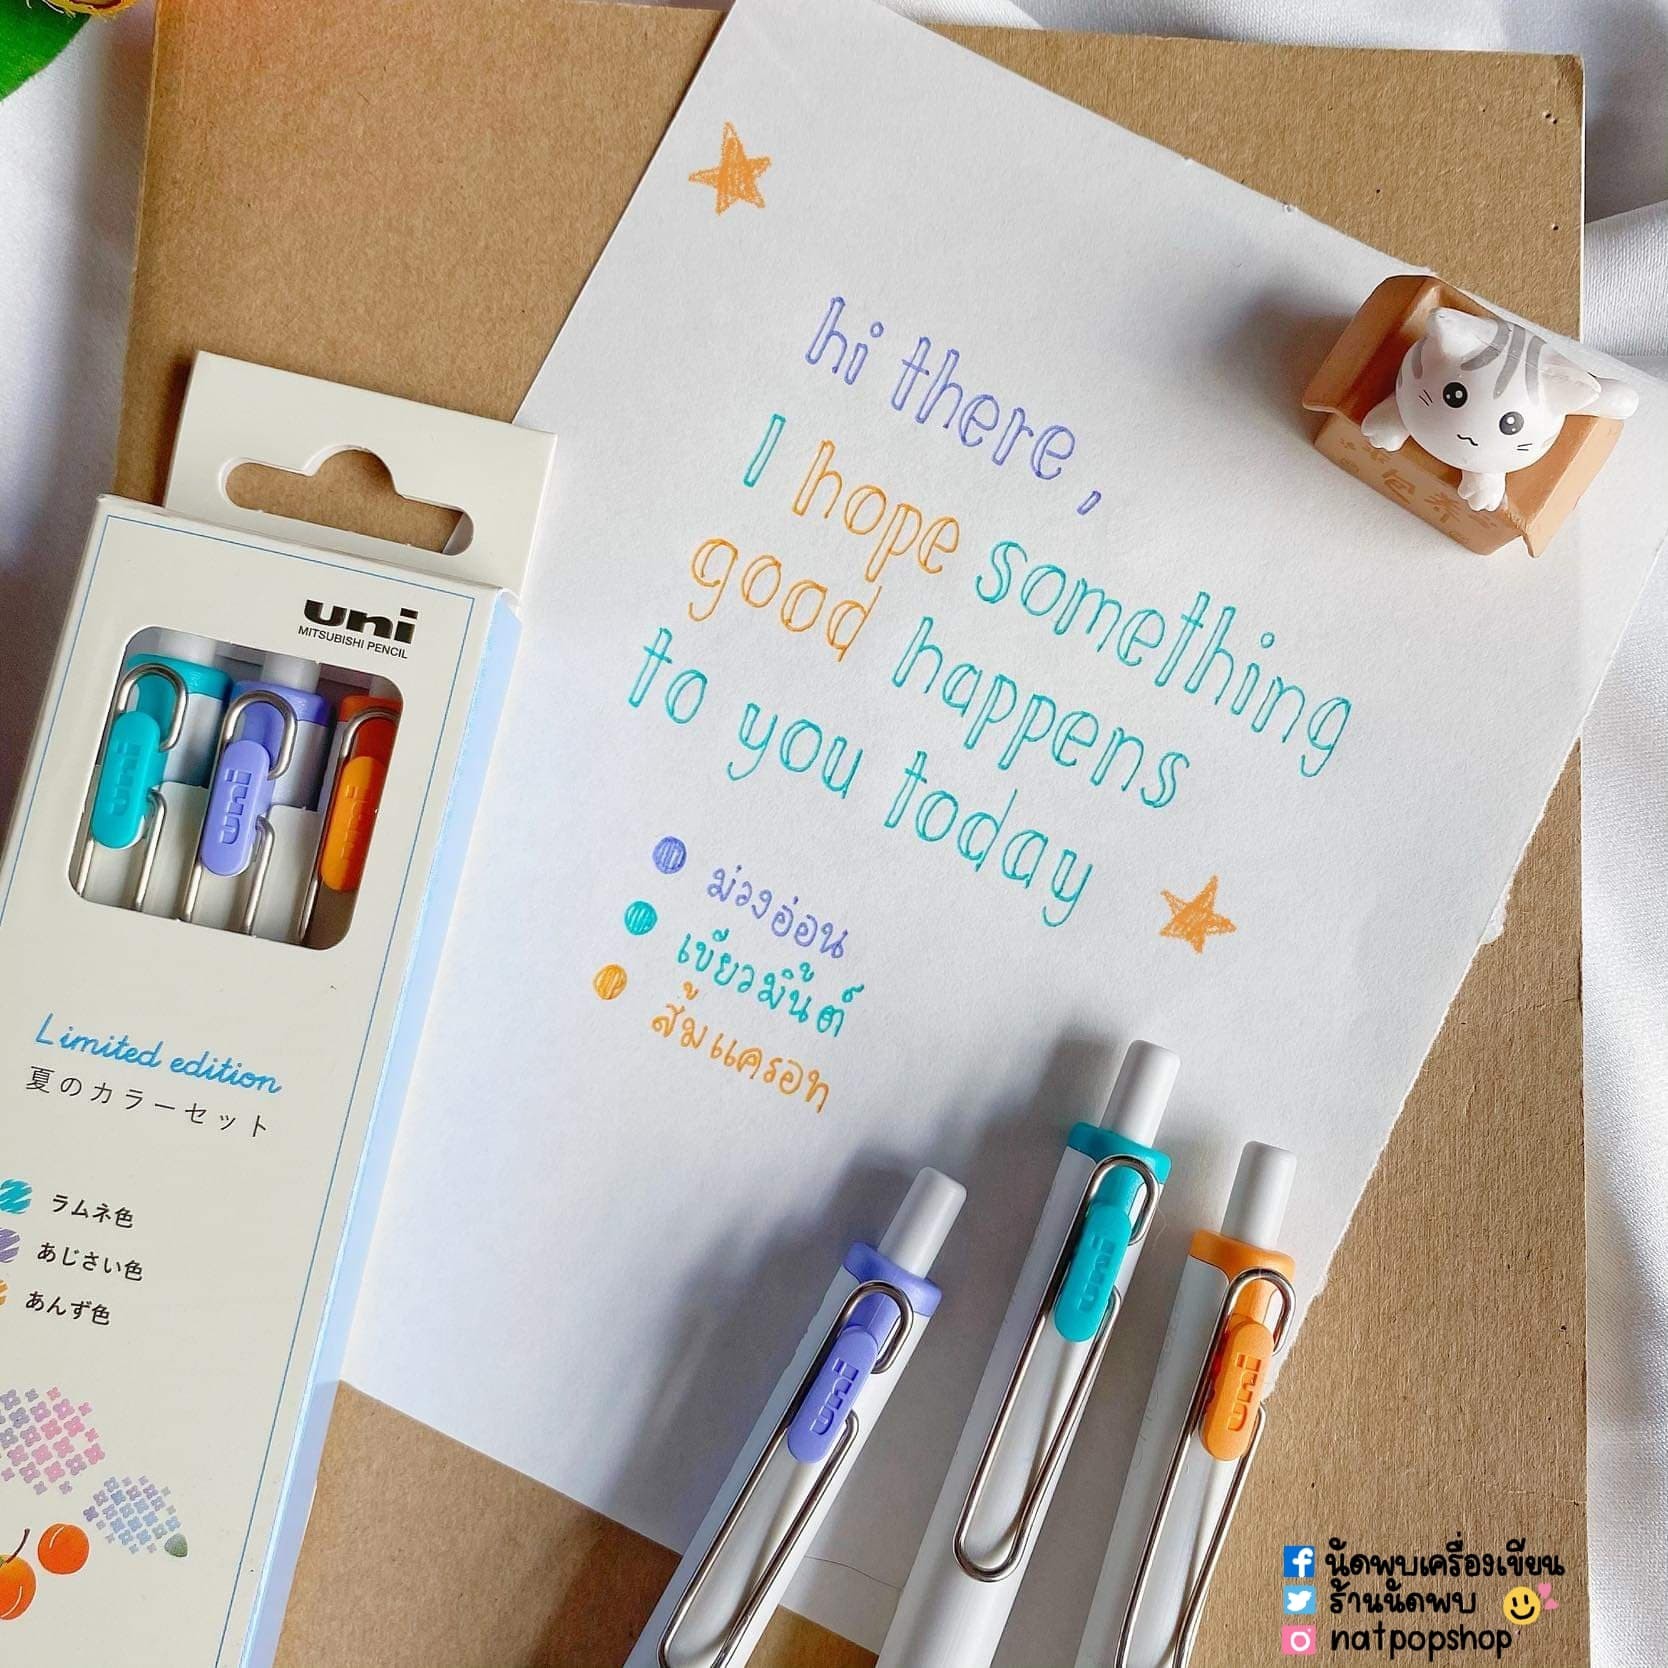 hi there,
I hope something
good happens
to you today
ม่วงอ่อน
เขียวมิ้นต์
ส้มแครอท
uni
MITSUBISHI PENCIL
uni
uni
uni
Limited edition
夏のカラーセット
ラムネ色
あじさい色
あんず色
uni
uni
uni
นัดพบเครื่องเขียน
ร้านนัดพบ
natpopshop